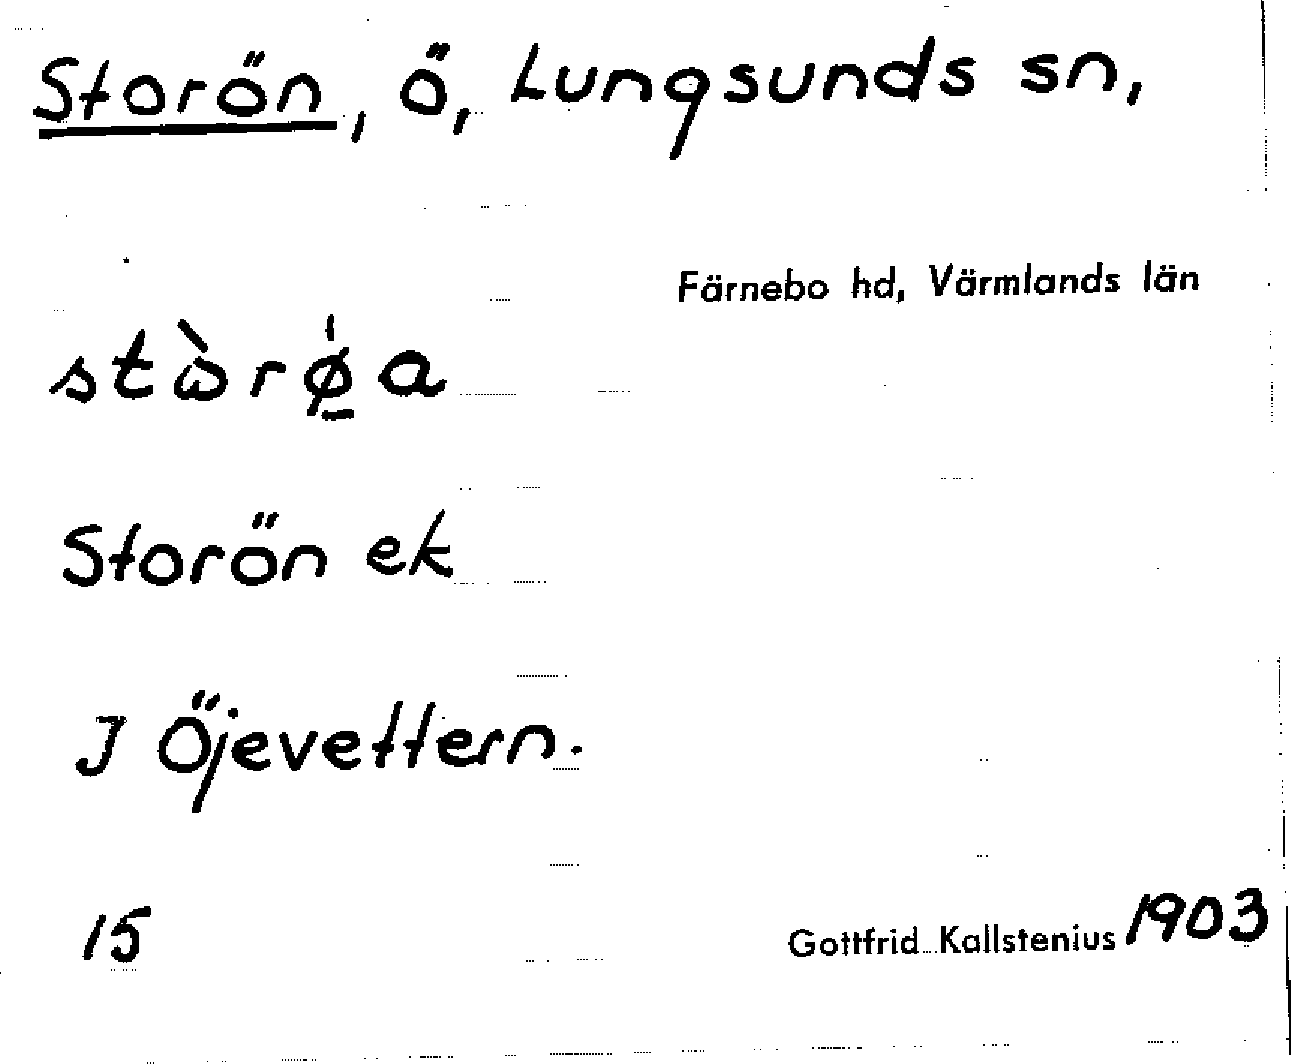 Storön, ö, Lungsunds sn,
Färnebo hd, Värmlands län
stὼrø̱̍a
Storön ek
I Öjevettern.
15
Gottfrid Kallstenius 1903